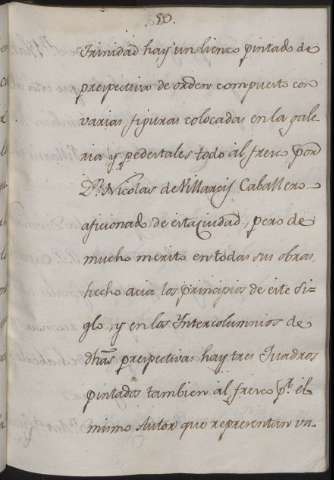 50.
Trinidad hay un lienzo pintado de
prespectiva de orden compuesto con
varias figuras colocadas en la gale
ria y pedestales todo al fresco por
Dn. Nicolas de Villarcis Caballero
aficionado de esta ciudad, pero de
mucho merito en todas sus obras,
hecho acia los principios de este Si-
glo, y en los Intercolumnios de
dhas prespectivas hay tres Quadros
pintados tambien al fresco pr. el
mismo Autor que representan va-